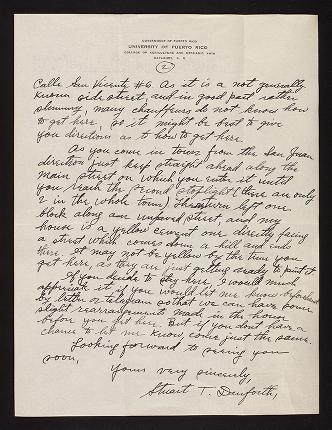 GOVERNMENT OF PUERTO RICO
UNIVERSITY OF PUERTO RICO
COLLEGE OF AGRICULTURE AND MECHANIC ARTS
MAYAGUEZ, P. R.
2
Calle San Vicente #6. As it is a not generally
known side street, and in good part rather
slummy, many chauffeurs do not know how
to get here, so it might be best to give
you directions as to how to get here.
As you come in town from the San Juan
direction just keep straight ahead along the
main street on which you enter it until
you reach the second stoplight (there are only
2 in the whole town) Then turn left one
block along an unpaved street, and my
house is a yellow cement one directly facing
a street which comes down a hill and ends
there. It may not be yellow by the time you
get here, as they are just getting ready to paint it
If you decide to stay here, I would much
appreciate it if you would let me know beforehand
by letter or telegram so that we can have some
slight rearrangements made in the house
before you get here. But if you don't have a
chance to let me know, come just the same.
Looking forward to seeing you
soon,
Yours very sincerely,
Stuart T. Danforth,